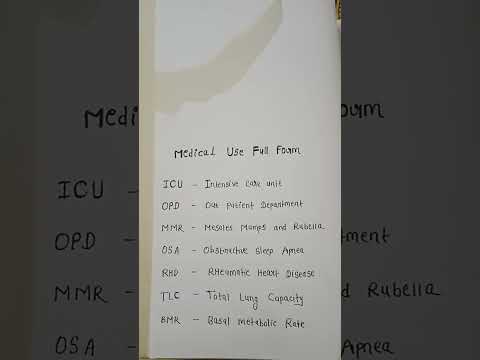 Medical Use Full Foum
ICU - Intensive Care unit
OPD - Out Patient Department
MMR - Mesoles Mumps and Rubella
OSA - Obstructive Sleep Apnea
RHD - RHeumatic Heart Disease
TLC - Total Lung Capacity
BMR - Basal Metabolic Rate